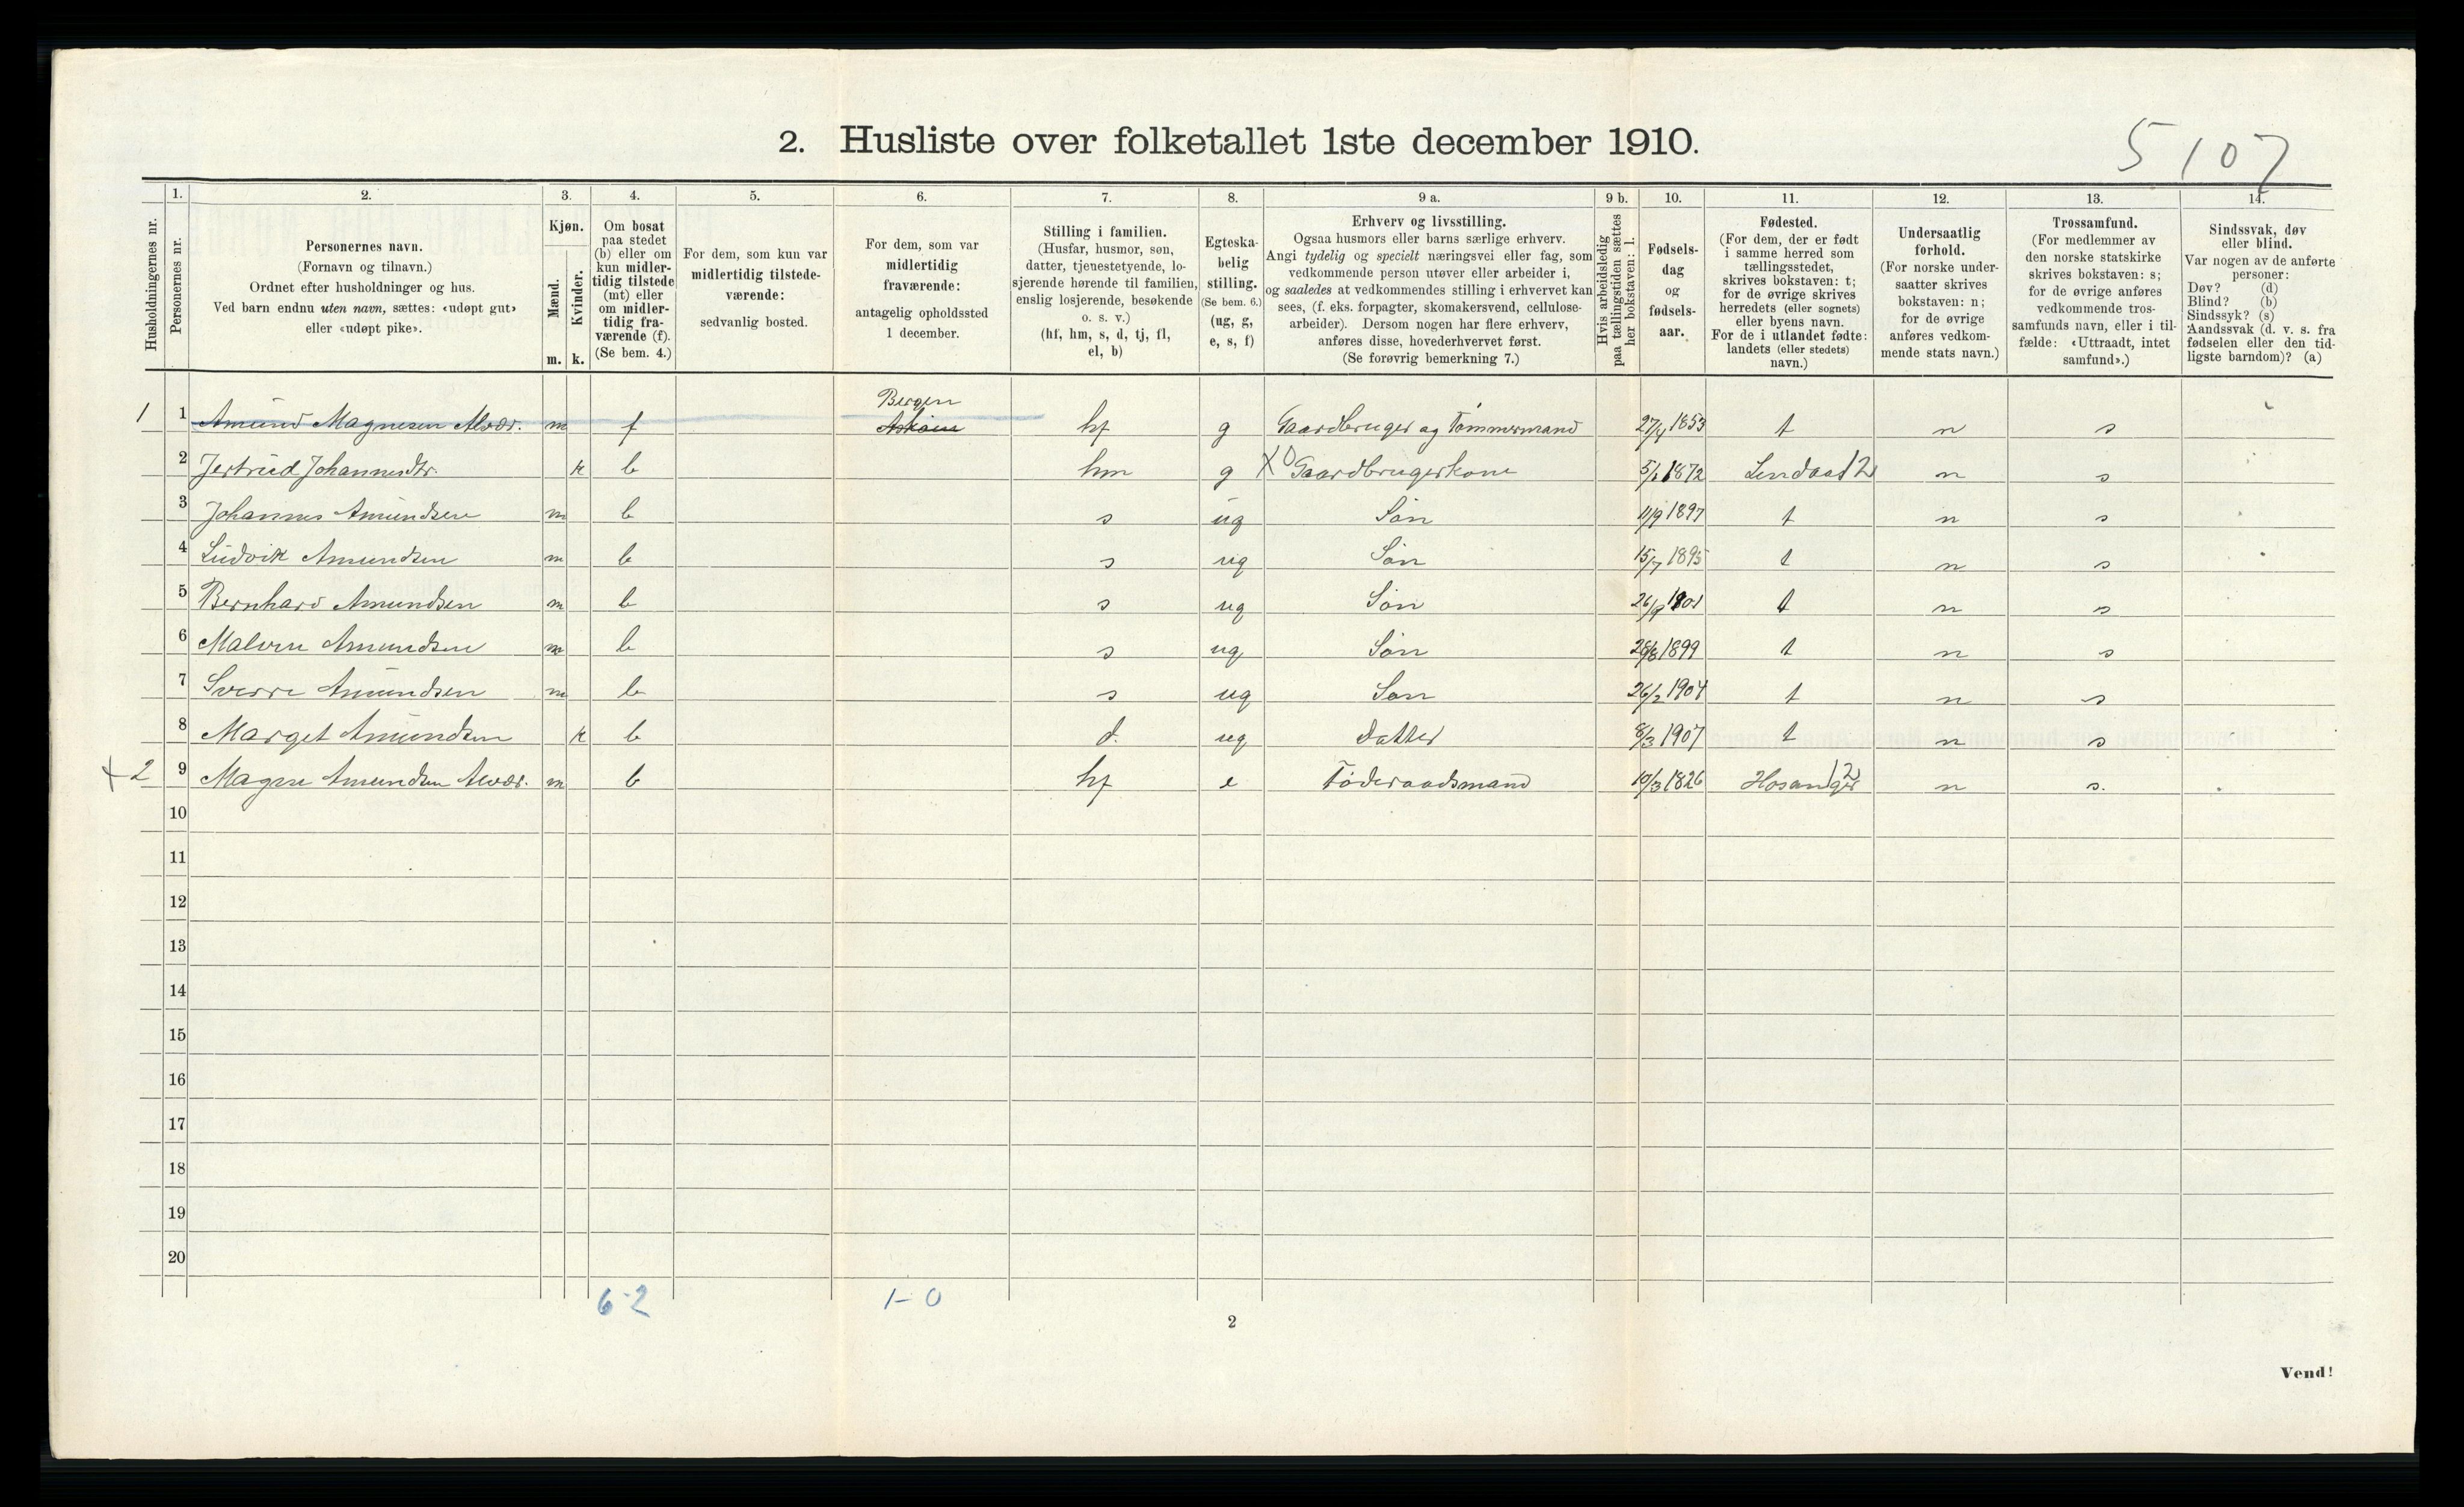 2. Husliste over folketallet 1ste december 1910.
5 107
Husholdningernes nr.
1. Personernes nr.
2. Personernes navn.
(Fornavn og tilnavn.)
Ordnet efter husholdninger og hus.
Ved barn endnu uten navn, sættes: «udøpt gut»
eller «udøpt pike».
3. Kjøn.
Mænd. m.
Kvinder. k.
4. Om bosat
paa stedet
(b) eller om
kun midler-
tidig tilstede
(mt) eller
om midler-
tidig fra-
værende (f).
(Se bem. 4.)
5. For dem, som kun var
midlertidig tilstede-
værende:
sedvanlig bosted.
6. For dem, som var
midlertidig
fraværende:
antagelig opholdssted
1 december.
7. Stilling i familien.
(Husfar, husmor, søn,
datter, tjenestetyende, lo-
sjerende hørende til familien,
enslig losjerende, besøkende
o. s. v.)
(hf, hm, s, d, tj, fl,
el, b)
8. Egteska-
belig
stilling.
(Se bem. 6.)
(ug, g,
e, s, f)
9 a. Erhverv og livsstilling.
Ogsaa husmors eller barns særlige erhverv.
Angi tydelig og specielt næringsvei eller fag, som
vedkommende person utøver eller arbeider i,
og saaledes at vedkommendes stilling i erhvervet kan
sees, (f. eks. forpagter, skomakersvend, cellulose-
arbeider). Dersom nogen har flere erhverv,
anføres disse, hovederhvervet først.
(Se forøvrig bemerkning 7.)
9 b. Hvis arbeidsledig
paa tællingstiden sættes
her bokstaven: l.
10. Fødsels-
dag
og
fødsels-
aar.
11. Fødested.
(For dem, der er født
i samme herred som
tællingsstedet,
skrives bokstaven: t;
for de øvrige skrives
herredets (eller sognets)
eller byens navn.
For de i utlandet fødte:
landets (eller stedets)
navn.)
12. Undersaatlig
forhold.
(For norske under-
saatter skrives
bokstaven: n;
for de øvrige
anføres vedkom-
mende stats navn.)
13. Trossamfund.
(For medlemmer av
den norske statskirke
skrives bokstaven: s;
for de øvrige anføres
vedkommende tros-
samfunds navn, eller i til-
fælde: «Uttraadt, intet
samfund».)
14. Sindssvak, døv
eller blind.
Var nogen av de anførte
personer:
Døv? (d)
Blind? (b)
Sindssyk? (s)
Aandssvak (d. v. s. fra
fødselen eller den tid-
ligste barndom)? (a)
Bergen
1 1 Amund Magnesen Alvær. m f hf g Gaardbruger og Tømmermand 27/4 1853 t n s
2 Jertrud Johannesdtr. k b hm g X 0 Gaardbrugerkone 5/1 1872 Lindaas 12 n s
3 Johannes Amundsen m b s ug Søn 11/9 1897 t n s
4 Ludvik Amundsen m b s ug Søn 15/7 1895 t n s
5 Bernhard Amundsen m b s ug Søn 26/9 1901 t n s
6 Malvin Amundsen m b s ug Søn 28/8 1899 t n s
7 Sverre Amundsen m b s ug Søn 26/2 1904 t n s
8 Marget Amundsen k b d. ug Datter 8/3 1907 t n s
+ 2 9 Magne Amundsen Alvær. m b hf e Føderaadsmand 10/3 1826 Hosanger 12 n s.
10
11
12
13
14
15
16
17
18
19
20
6-2 1-0
2
Vend!